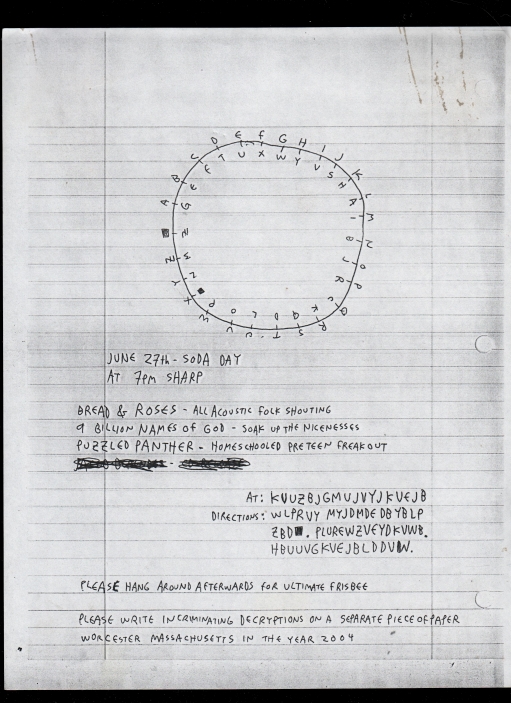 A B C D E F G H I J K L M N O P Q R S T U V W X Y Z
G E F T U X W Y V S H A I B J R C K Q D L O P N M Z
JUNE 27th - SODA DAY
AT 7PM SHARP
BREAD & ROSES - ALL ACOUSTIC FOLK SHOUTING
9 BILLION NAMES OF GOD - SOAK UP THE NICENESSES
PUZZLED PANTHER - HOMESCHOOLED PRETEEN FREAKOUT
AT: KVUZBJGMUJVYJKVEJB
DIRECTIONS: WLPRVY MYJDMDE DBYBLP
ZBD■. PLUREWZVEYDKVWB.
HBUUVGKVEJBLDDVW.
PLEASE HANG AROUND AFTERWARDS FOR ULTIMATE FRISBEE
PLEASE WRITE INCRIMINATING DECRYPTIONS ON A SEPARATE PIECE OF PAPER
WORCESTER MASSACHUSETTS IN THE YEAR 2004